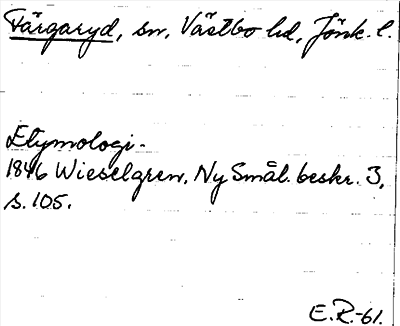 Färgaryd, sn, Västbo hd, Jönk. l.
Etymologi.
1846 Wieselgren, Ny Smål. beskr. 3,
s. 105.
E.R.-61.